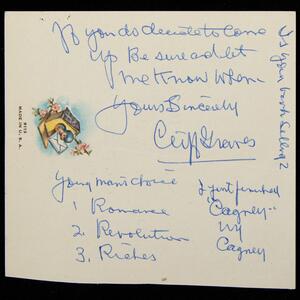 If you do decide to come
up Be sure and let
me Know when.
Yours Sincerely
Cliff Graves
Young man's choice
1 Romance
2. Revolution
3. Riches
I just finished
"Cagney"
by
Cagney
Is your book selling?
MADE IN U.S.A.